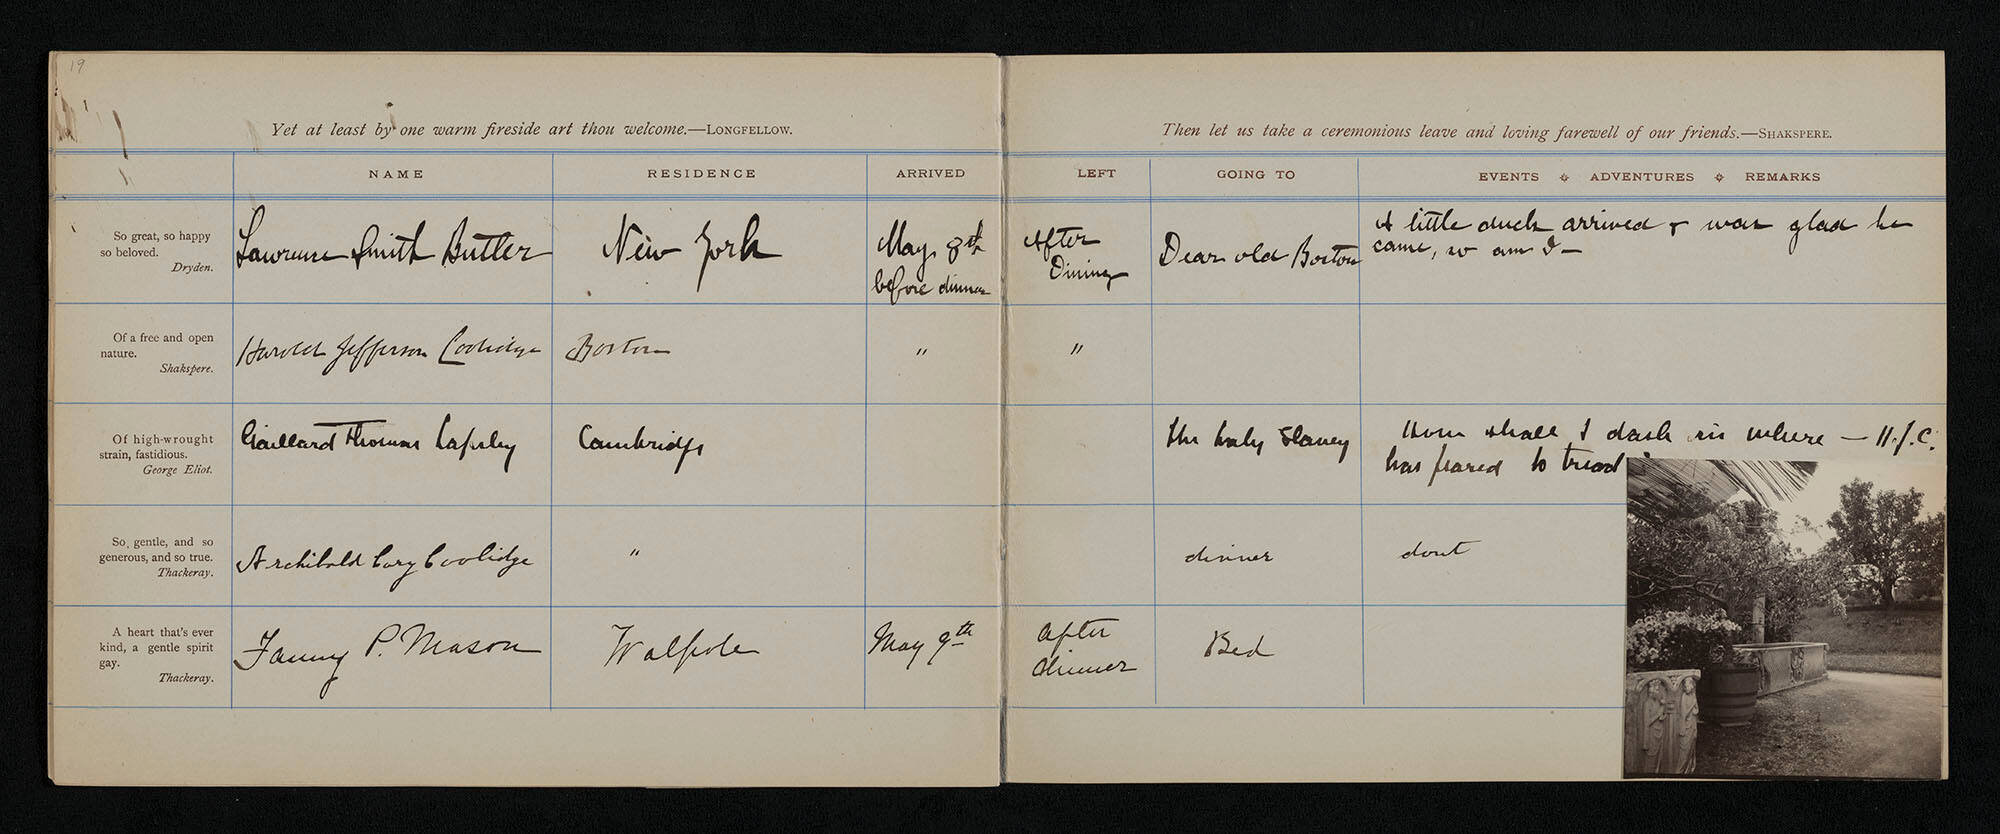 19
Yet at least by one warm fireside art thou welcome.—LONGFELLOW.
Then let us take a ceremonious leave and loving farewell of our friends.—SHAKSPERE.
NAME RESIDENCE ARRIVED LEFT GOING TO EVENTS ADVENTURES REMARKS
So great, so happy
so beloved.
Dryden.
Lawrence Smith Butler
New York
May 8th
before dinner
After
Dining
Dear old Boston
A little duck arrived & was glad he
came, so am I—
Of a free and open
nature.
Shakspere.
Harold Jefferson Coolidge
Boston
"
"
Of high-wrought
strain, fastidious.
George Eliot.
Gaillard Thomas Lapsley
Cambridge
the holy
shall I dash in where — H.J.C.
has feared to tread
So gentle, and so
generous, and so true.
Thackeray.
Archibald Cary Coolidge
"
dinner
dont
A heart that's ever
kind, a gentle spirit
gay.
Thackeray.
Fanny P. Mason
Walpole
May 9th
after
dinner
Bed